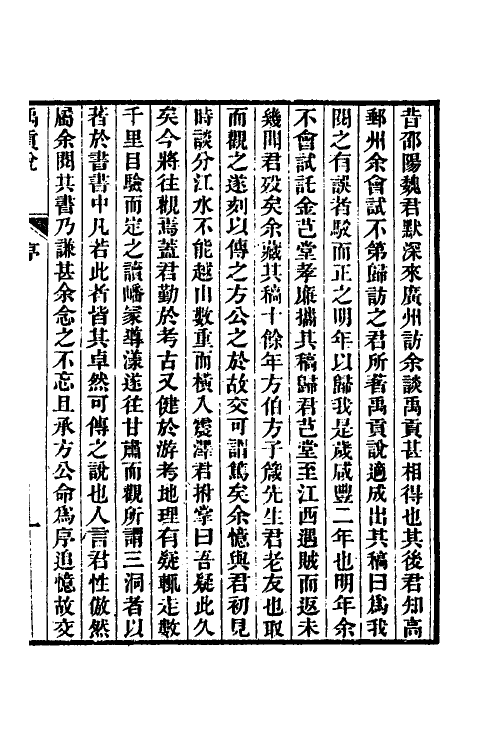 昔邵陽魏君默深來廣州訪余談禹貢甚相得也其後君知高
郵州余會試不第歸訪之君所著禹貢說適成出其稿曰爲我
閱之有誤者駁而正之明年以歸我是歲咸豐二年也明年余
不會試託金芑堂孝廉攜其稿歸君芑堂至江西遇賊而返未
幾聞君歿矣余藏其稿十餘年方伯方子箴先生君老友也取
而觀之遂刻以傳之方公之於故交可謂篤矣余憶與君初見
時談分江水不能越山數重而橫入震澤君拊掌曰吾疑此久
矣今將往觀焉蓋君勤於考古又健於游考地理有疑輒走數
千里目驗而定之讀嶓冢導漾遂往甘肅而觀所謂三洞者以
著於書書中凡若此者皆其卓然可傳之說也人言君性傲然
屬余閱其書乃謙甚余念之不忘且承方公命爲序追憶故交
禹貢說
序
一